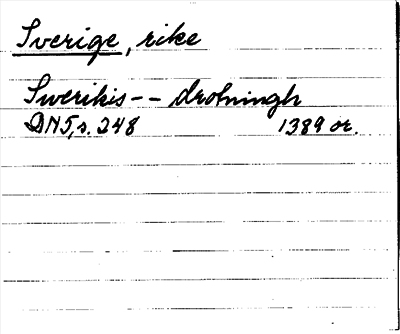 Sverige, rike
Swerikis -- drotningh
DN 5, s. 248 1389 or.